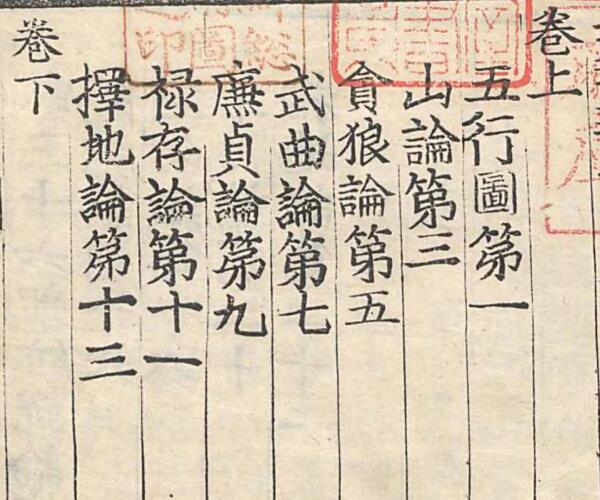 卷上
五行圖第一
山論第三
貪狼論第五
武曲論第七
廉貞論第九
禄存論第十一
擇地論第十三
卷下